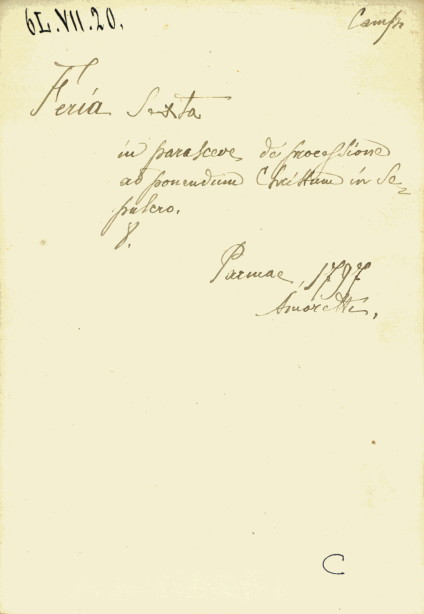 6L.VII.20.
Feria Sexta
in parasceve de processione
ad ponendum Christum in Se=
pulcro.
8.
Parmae, 1797
Amoretti,
C